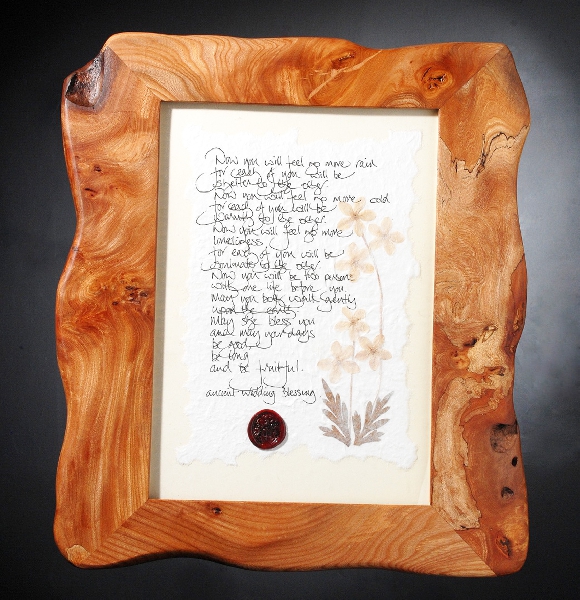 Now you will feel no more rain
for each of you will be
shelter to the other
Now you will feel no more cold
for each of you will be
warmth to the other.
Now you will feel no more
loneliness
for each of you will be
to the other
Now you will be two persons
with one life before you.
May you both walk gently
upon the earth
May she bless you
and may your days
be good
be long
and be fruitful.
ancient wedding blessing